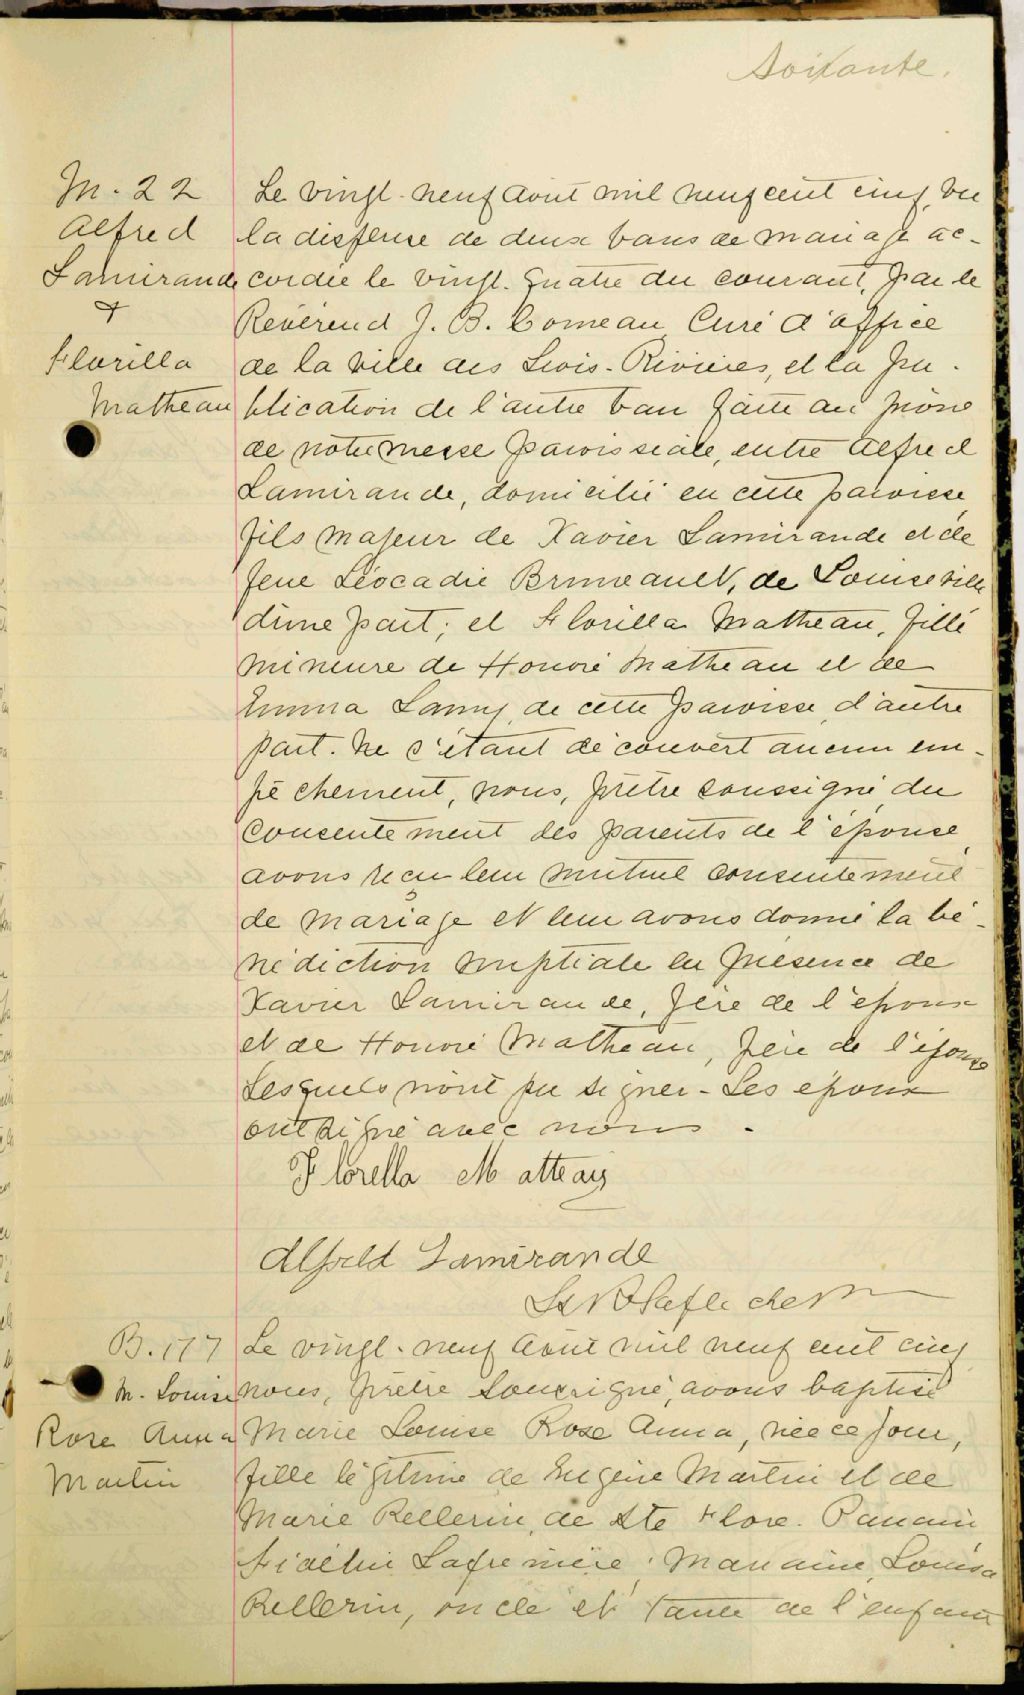 Soixante.
M. 22
Alfred
Lamirande
&
Florilla
Matheau
Le vingt-neuf août mil neuf cent cinq, vu
la dispense de deux bans de mariage ac-
cordée le vingt-quatre du courant, par le
Révérend J. B. Comeau, Curé d'office
de la ville des Trois-Rivières, et la pu-
blication de l'autre ban faite au prône
de notre messe paroissiale, entre Alfred
Lamirande, domicilié en cette paroisse,
fils majeur de Xavier Lamirande et de
feue Léocadie Bruneault, de Louiseville
d'une part; et Florilla Matheau, fille
mineure de Honoré Matheau et de
Emma Lamy, de cette paroisse, d'autre
part. Ne s'étant découvert aucun em-
pêchement, nous, prêtre soussigné, du
consentement des parents de l'épouse,
avons reçu leur mutuel consentement
de mariage et leur avons donné la bé-
nédiction nuptiale en présence de
Xavier Lamirande, père de l'époux
et de Honoré Matheau, père de l'épouse
Lesquels n'ont pu signer - Les époux
ont signé avec nous.
Florella Matteau
Alfreld Lamirande
Laflèche
B. 177
M. Louise
Rose Anna
Martin
Le vingt-neuf août mil neuf cent cinq
nous, prêtre soussigné, avons baptisé
Marie Louise Rose Anna, née ce jour,
fille légitime de Eugène Martin et de
Marie Pellerin, de Ste Flore. Parrain
Fidélin Lafrenière; Marraine, Louisa
Pellerin, oncle et tante de l'enfant